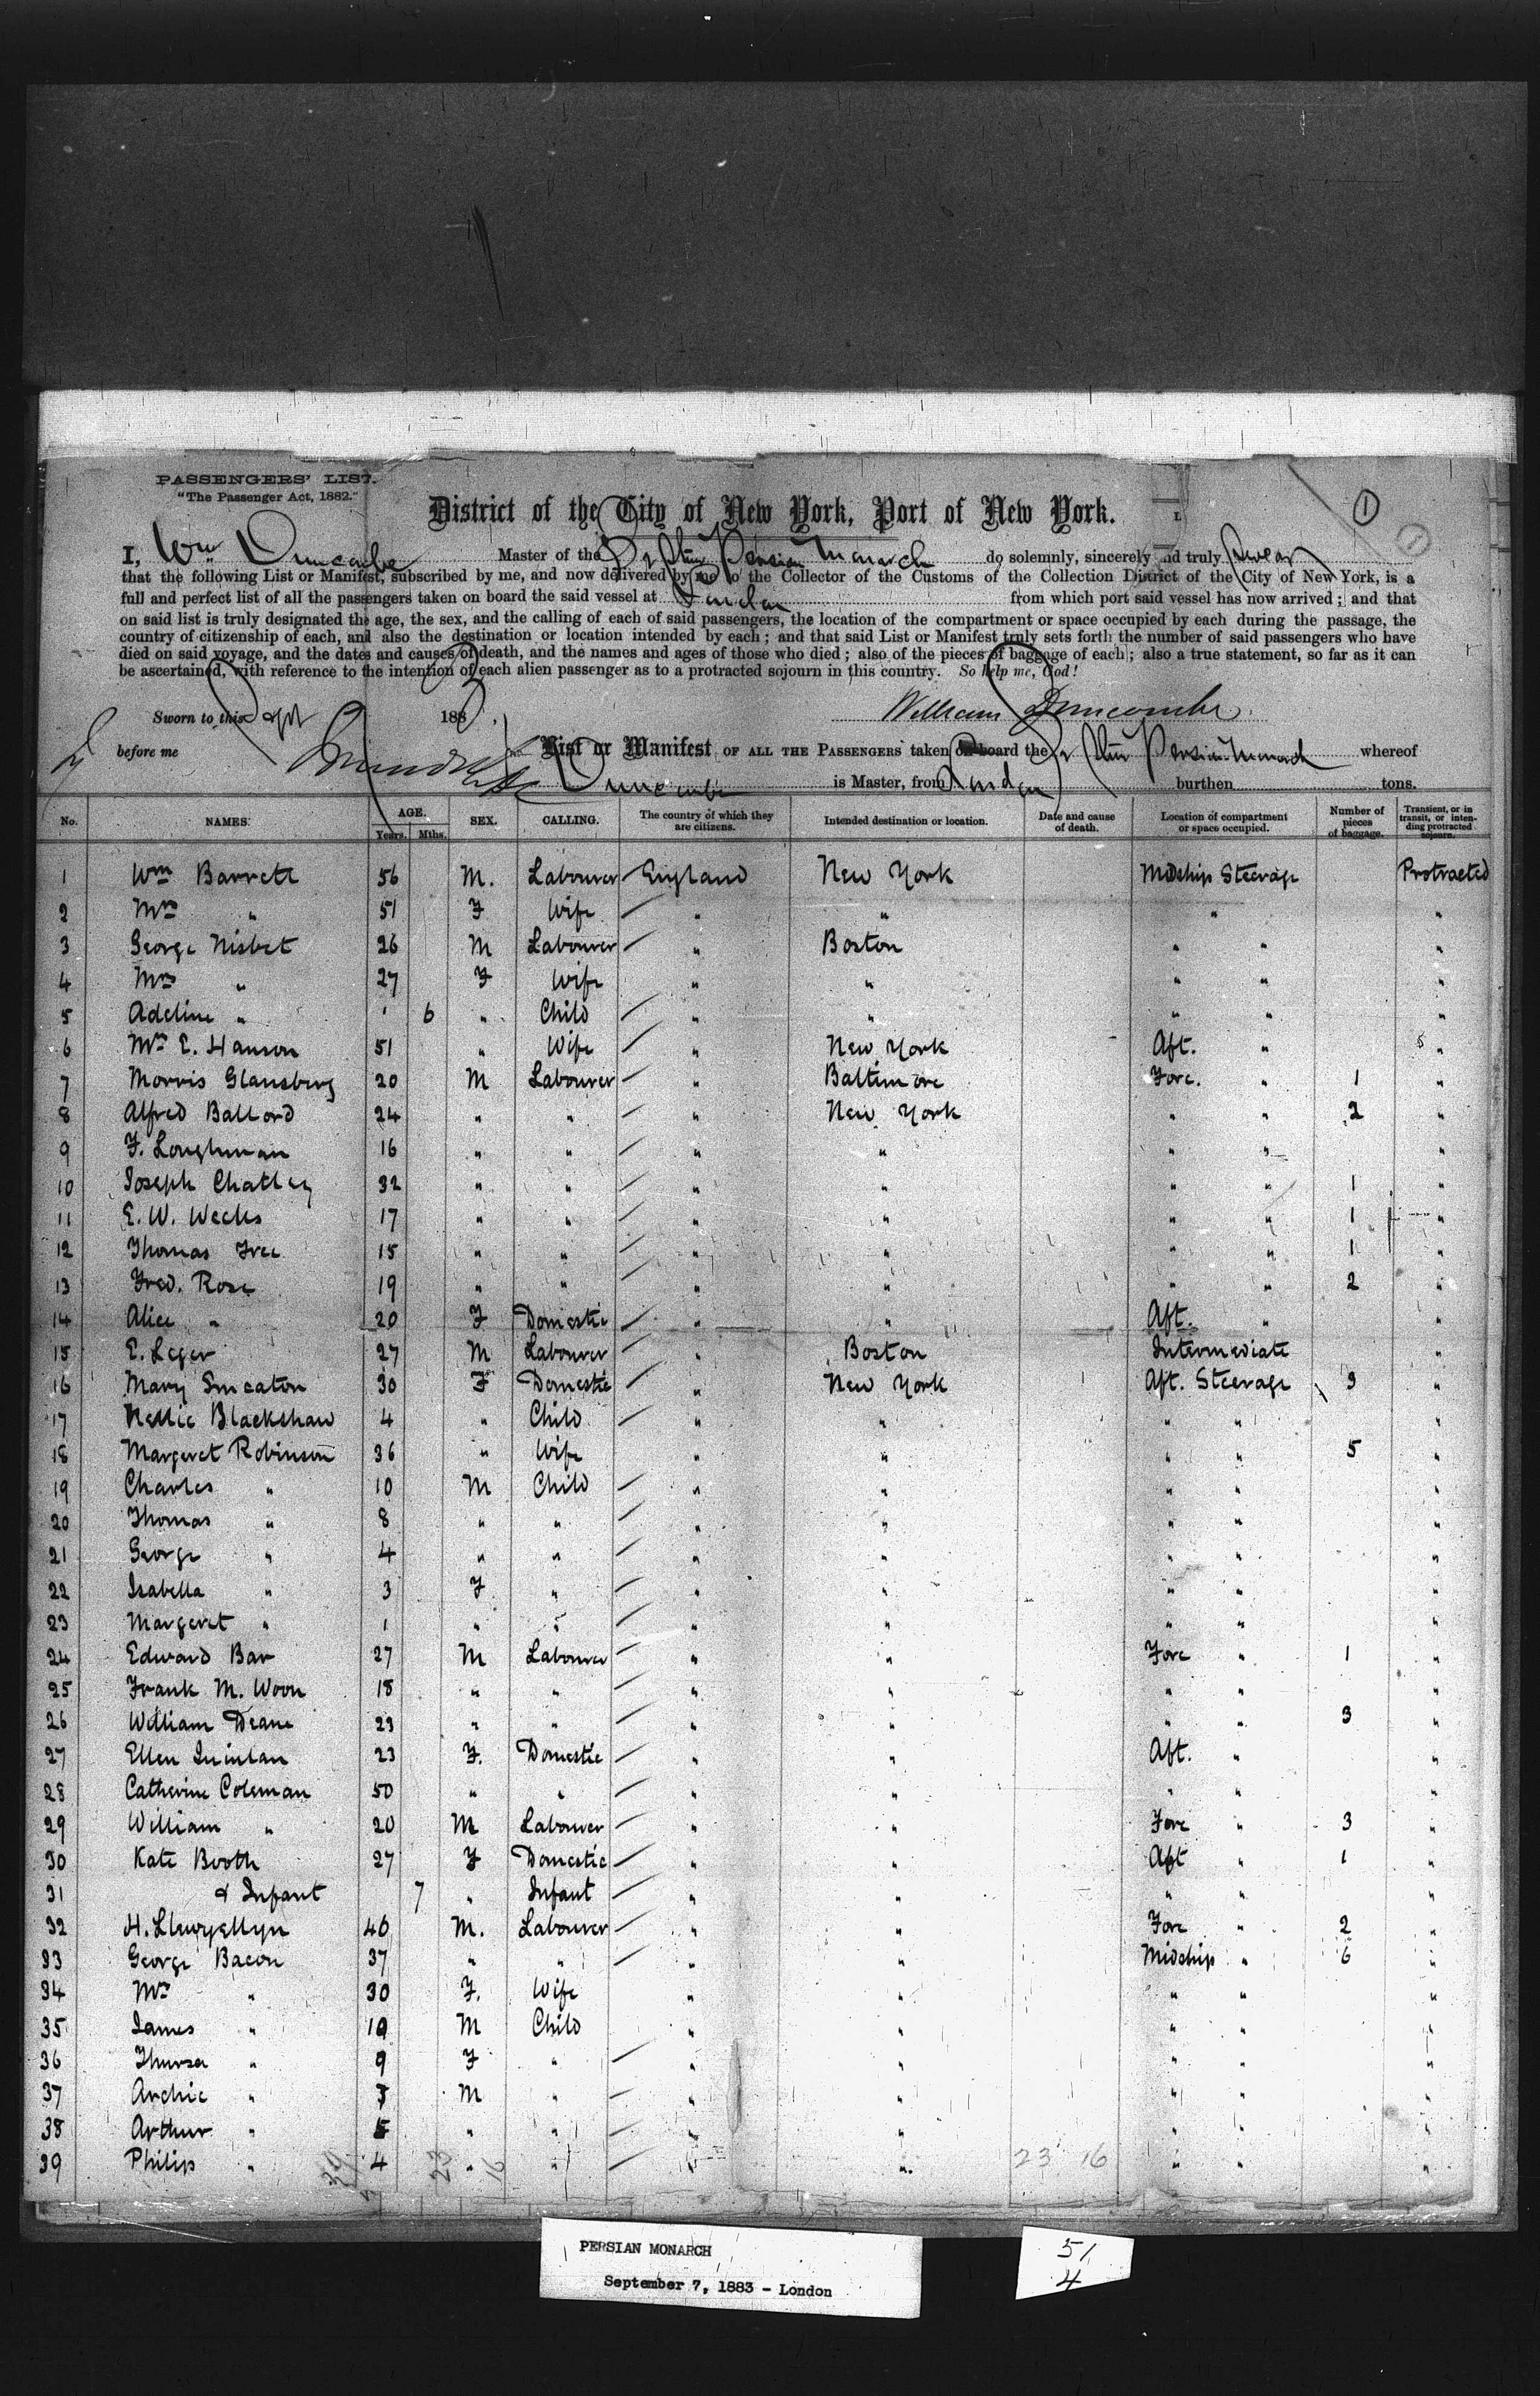 PASSENGERS' LIST.
"The Passenger Act, 1882."
District of the City of New York, Port of New York.
1
1
I, Wm Duncombe Master of the Br Stmr Persian Monarch do solemnly, sincerely and truly Swear
that the following List or Manifest, subscribed by me, and now delivered by me to the Collector of the Customs of the Collection District of the City of New York, is a
full and perfect list of all the passengers taken on board the said vessel at London from which port said vessel has now arrived; and that
on said list is truly designated the age, the sex, and the calling of each of said passengers, the location of the compartment or space occupied by each during the passage, the
country of citizenship of each, and also the destination or location intended by each; and that said List or Manifest truly sets forth the number of said passengers who have
died on said voyage, and the dates and causes of death, and the names and ages of those who died; also of the pieces of baggage of each; also a true statement, so far as it can
be ascertained, with reference to the intention of each alien passenger as to a protracted sojourn in this country. So help me, God!
Sworn to this Sept 7 1883. William Duncombe
before me
List or Manifest OF ALL THE PASSENGERS taken on board the Br Stmr Persian Monarch whereof
Duncombe is Master, from London burthen tons.
No. NAMES. AGE. Years. Mths. SEX. CALLING. The country of which they are citizens. Intended destination or location. Date and cause of death. Location of compartment or space occupied. Number of pieces of baggage. Transient, or in transit, or intending protracted sojourn.
1 Wm Barrett 56 M. Labourer England New York Midship Steerage Protracted
2 Mrs " 51 F Wife " " " "
3 George Nisbet 26 M Labourer " Boston " " "
4 Mrs " 27 F Wife " " " " "
5 Adeline " ' 6 " Child " " " " "
6 Mrs E. Hanson 51 " Wife " New York Aft. " "
7 Morris Glansberg 20 M Labourer " Baltimore Fore. " 1 "
8 Alfred Ballord 24 " " " New York " " 2 "
9 F. Loughman 16 " " " " " " "
10 Joseph Chatley 32 " " " " " " 1 "
11 E. W. Weeks 17 " " " " " " 1 "
12 Thomas Free 15 " " " " " " 1 "
13 Fred. Rose 19 " " " " " " 2 "
14 Alice " 20 F Domestic " " Aft. " "
15 E. Leger 27 M Labourer " Boston Intermediate "
16 Mary Smeaton 30 F Domestic " New York Aft. Steerage 3 "
17 Nellie Blackshaw 4 " Child " " " " "
18 Margeret Robinson 36 " Wife " " " " 5 "
19 Charles " 10 M Child " " " " "
20 Thomas " 8 " " " " " " "
21 George " 4 " " " " " " "
22 Isabella " 3 F " " " " " "
23 Margeret " 1 " " " " " " "
24 Edward Bar 27 M Labourer " " Fore " 1 "
25 Frank M. Woon 18 " " " " " " "
26 William Deane 23 " " " " " " 3 "
27 Ellen Quinlan 23 F. Domestic " " Aft. " "
28 Catherine Coleman 50 " " " " " " "
29 William " 20 M Labourer " " Fore " 3 "
30 Kate Booth 27 F Domestic " " Aft " 1 "
31 & Infant 7 " Infant " " " " "
32 H. Llewyellyn 40 M. Labourer " " Fore " 2 "
33 George Bacon 37 " " " " Midship " 6 "
34 Mrs " 30 F. Wife " " " " "
35 James " 10 M Child " " " " "
36 Thursa " 9 F " " " " " "
37 Archie " 7 M " " " " " "
38 Arthur " 5 " " " " " " "
39 Philip " 4 " " " " " " "
39 23 16 23 16
PERSIAN MONARCH
September 7, 1883 - London
51
4